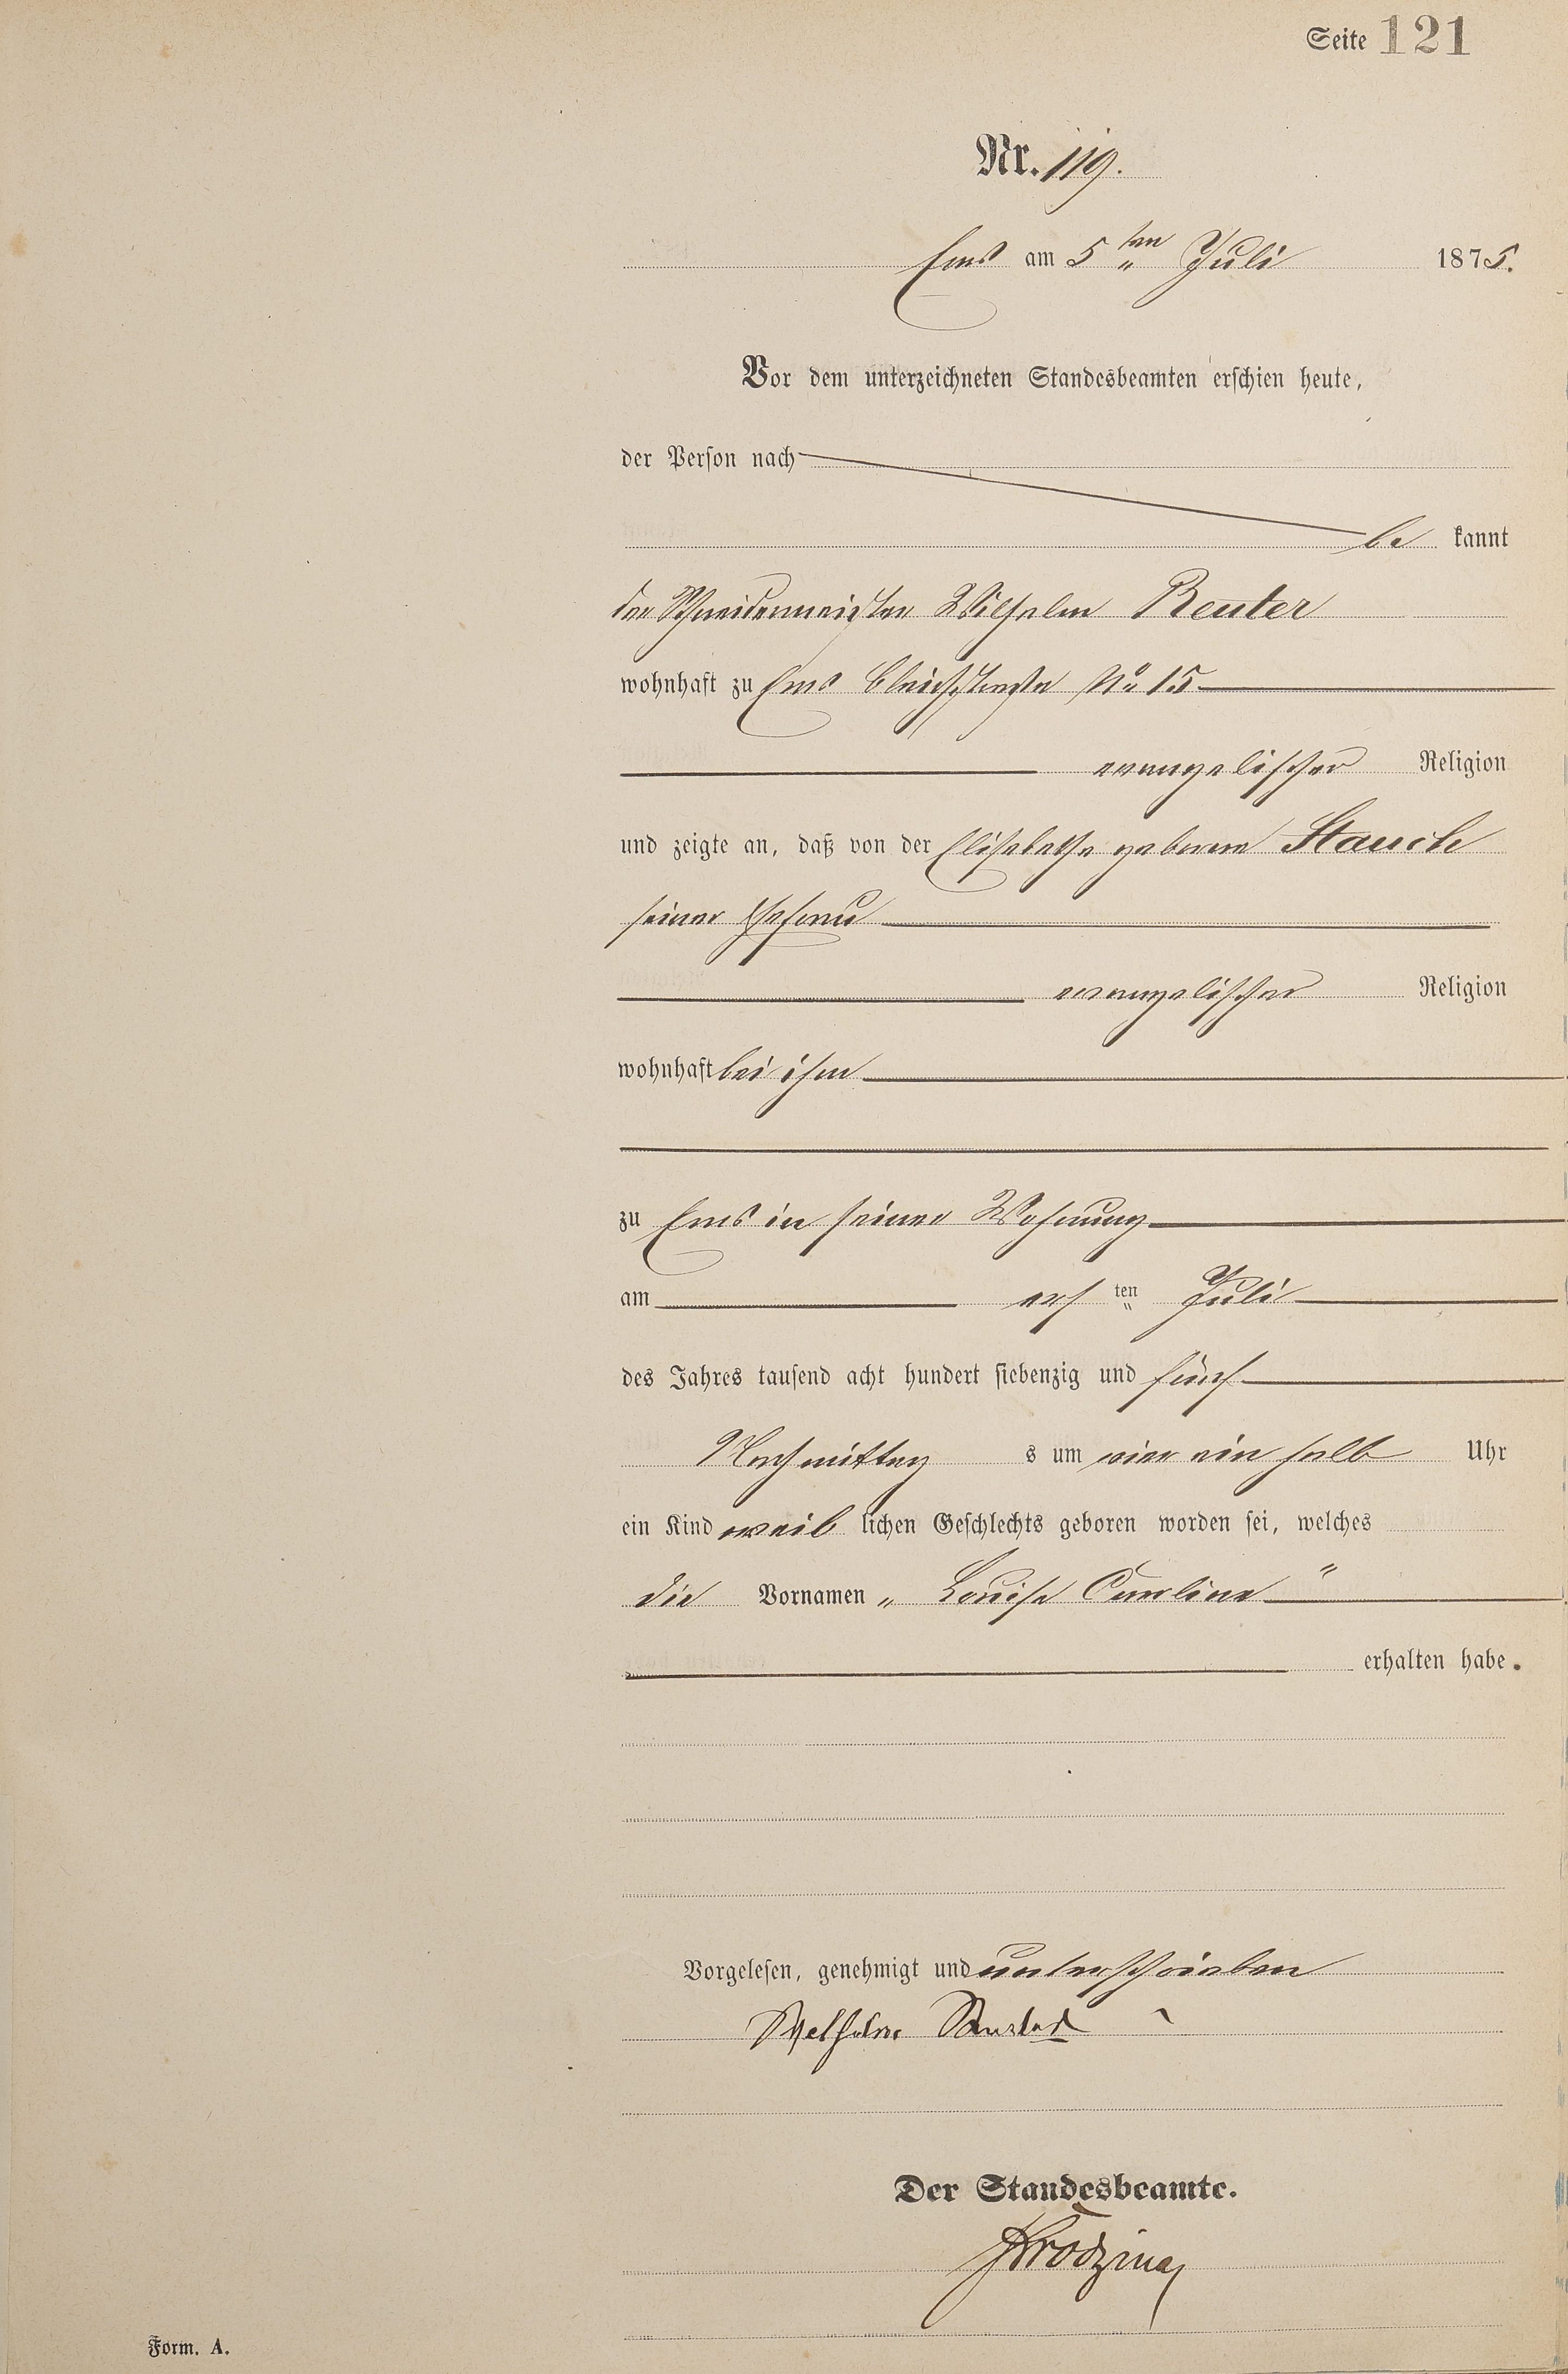 Seite 121
Nr. 119.
Ems am 5ten Juli 1875.
Vor dem unterzeichneten Standesbeamten erschien heute,
der Person nach
be kannt
der Schneidermeister Wilhelm Reuter
wohnhaft zu Ems Bleichstraße No 15
evangelischer Religion
und zeigte an, daß von der Elisabethe geborene Stauch
seiner Ehefrau
evangelischer Religion
wohnhaft bei ihm
zu Ems in seiner Wohnung
am ersten Juli
des Jahres tausend acht hundert siebenzig und fünf
Nachmittag s um vier ein halb Uhr
ein Kind weib lichen Geschlechts geboren worden sei, welches
die Vornamen „ Louise Caroline "
erhalten habe.
Vorgelesen, genehmigt und unterschrieben
Wilhelm Reuter
Der Standesbeamte.
Form. A.